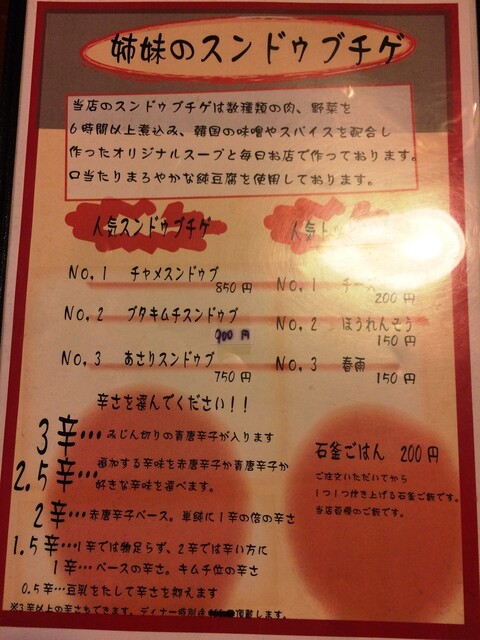 姉妹のスンドゥブチゲ
当店のスンドゥブチゲは数種類の肉、野菜を
6時間以上煮込み、韓国の味噌やスパイスを配合し
作ったオリジナルスープと毎日お店で作っております。
口当たりまろやかな純豆腐を使用しております。
人気スンドゥブチゲ
No.1 チャメスンドゥブ
850円
No.2 ブタキムチスンドゥブ
900円
No.3 あさりスンドゥブ
750円
人気
No.1 チーズ
200円
No.2 ほうれんそう
150円
No.3 春雨
150円
辛さを選んでください!!
3辛・・・みじん切りの青唐辛子が入ります
2.5辛・・・追加する辛味を赤唐辛子か青唐辛子か
好きな辛味を選べます。
2辛・・・赤唐辛子ベース。単純に1辛の倍の辛さ
1.5辛・・・1辛では物足らず、2辛では辛い方に
1辛・・・ベースの辛さ。キムチ位の辛さ
0.5辛・・・豆乳をたして辛さを抑えます
※3辛以上の辛さもできます。ディナー
頂戴します。
石釜ごはん 200円
ご注文いただいてから
1つ1つ炊き上げる石釜ご飯です。
当店自慢のご飯です。